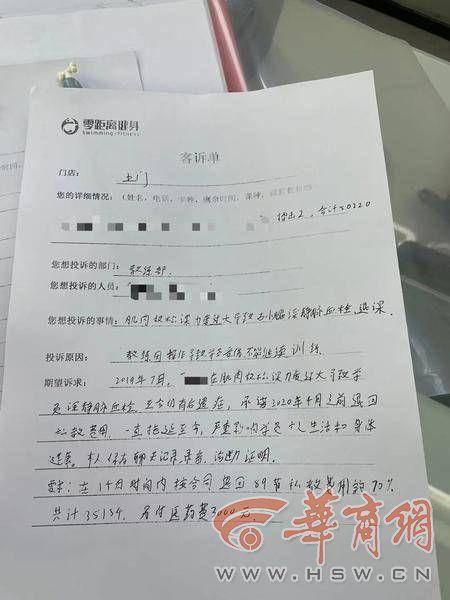 零距离健身
SWIMMING·FITNESS
客诉单
门店： 土门
您的详细情况：（姓名，电话，卡种，剩余时间，课种，
拳击2，合计50220
您想投诉的部门： 教练部.
您想投诉的人员：
您想投诉的事情： 肌肉放松深力度过大导致右小腿深静脉血栓,退课
投诉原因： 教练因操作导致学员受伤不能继续训练
期望诉求： 2019年7月, 在肌肉放松深力度过大导致学
员深静脉血栓, 至今仍有后遗症, 承诺2020年4月之前退回
私教费用, 一直拖延至今, 严重影响学员个人生活和身体
健康. 本人保存聊天记录录音, 证明.
要求: 在14日时间内按合同退回89节私教费用的70%
共计35154. 另付医药费3000元.
華商網
WWW.HSW.CN